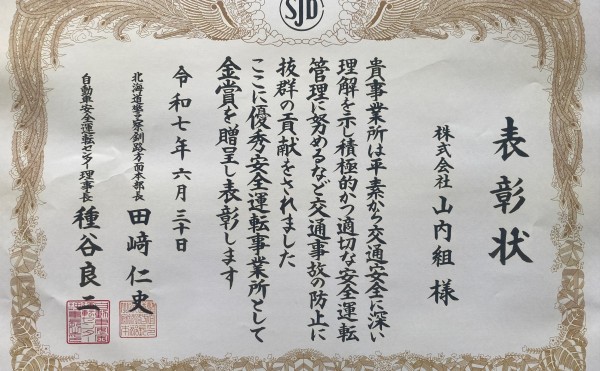 SJD
表彰状
株式会社 山内組 様
貴事業所は平素から交通安全に深い
理解を示し積極的かつ適切な安全運転
管理に努めるなど交通事故の防止に
抜群の貢献をされました
ここに優秀安全運転事業所として
金賞を贈呈し表彰します
令和七年六月三十日
北海道警察釧路方面本部長 田﨑仁史
自動車安全運転センター理事長 種谷良二